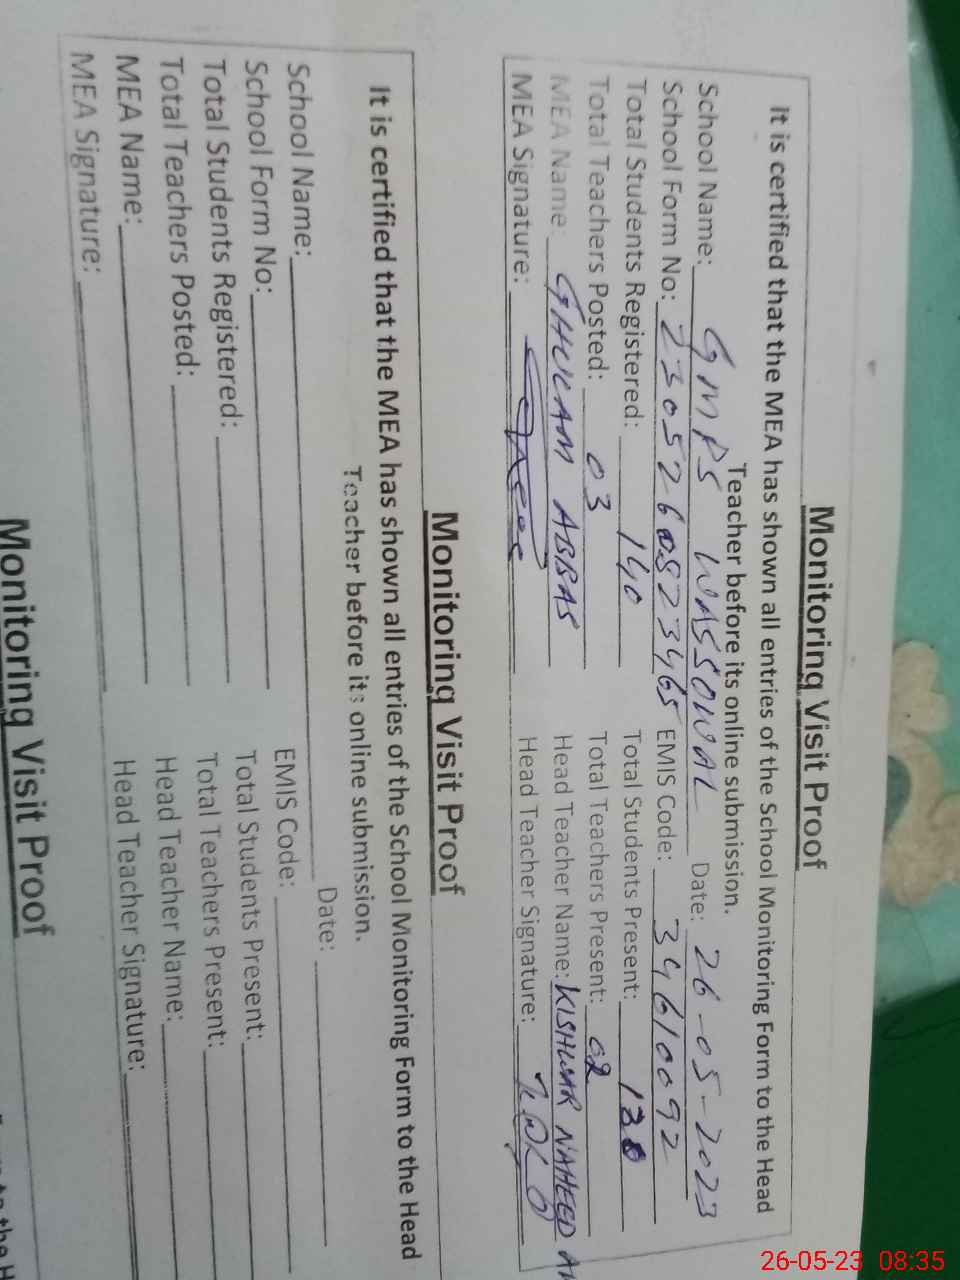 Monitoring Visit Proof
It is certified that the MEA has shown all entries of the School Monitoring Form to the Head
Teacher before its online submission.
School Name: GMPS WASSOWAL Date: 26-05-2023
School Form No: 2305260823465 EMIS Code: 34610092
Total Students Registered: 140 Total Students Present:
Total Teachers Posted: 03 Total Teachers Present: 02
MEA Name: GHULAM ABBAS Head Teacher Name: KISHWAR NAHEED
MEA Signature: Head Teacher Signature:
Monitoring Visit Proof
It is certified that the MEA has shown all entries of the School Monitoring Form to the Head
Teacher before its online submission.
School Name: Date:
School Form No: EMIS Code:
Total Students Registered: Total Students Present:
Total Teachers Posted: Total Teachers Present:
MEA Name: Head Teacher Name:
MEA Signature: Head Teacher Signature:
Monitoring Visit Proof
26-05-23 08:35